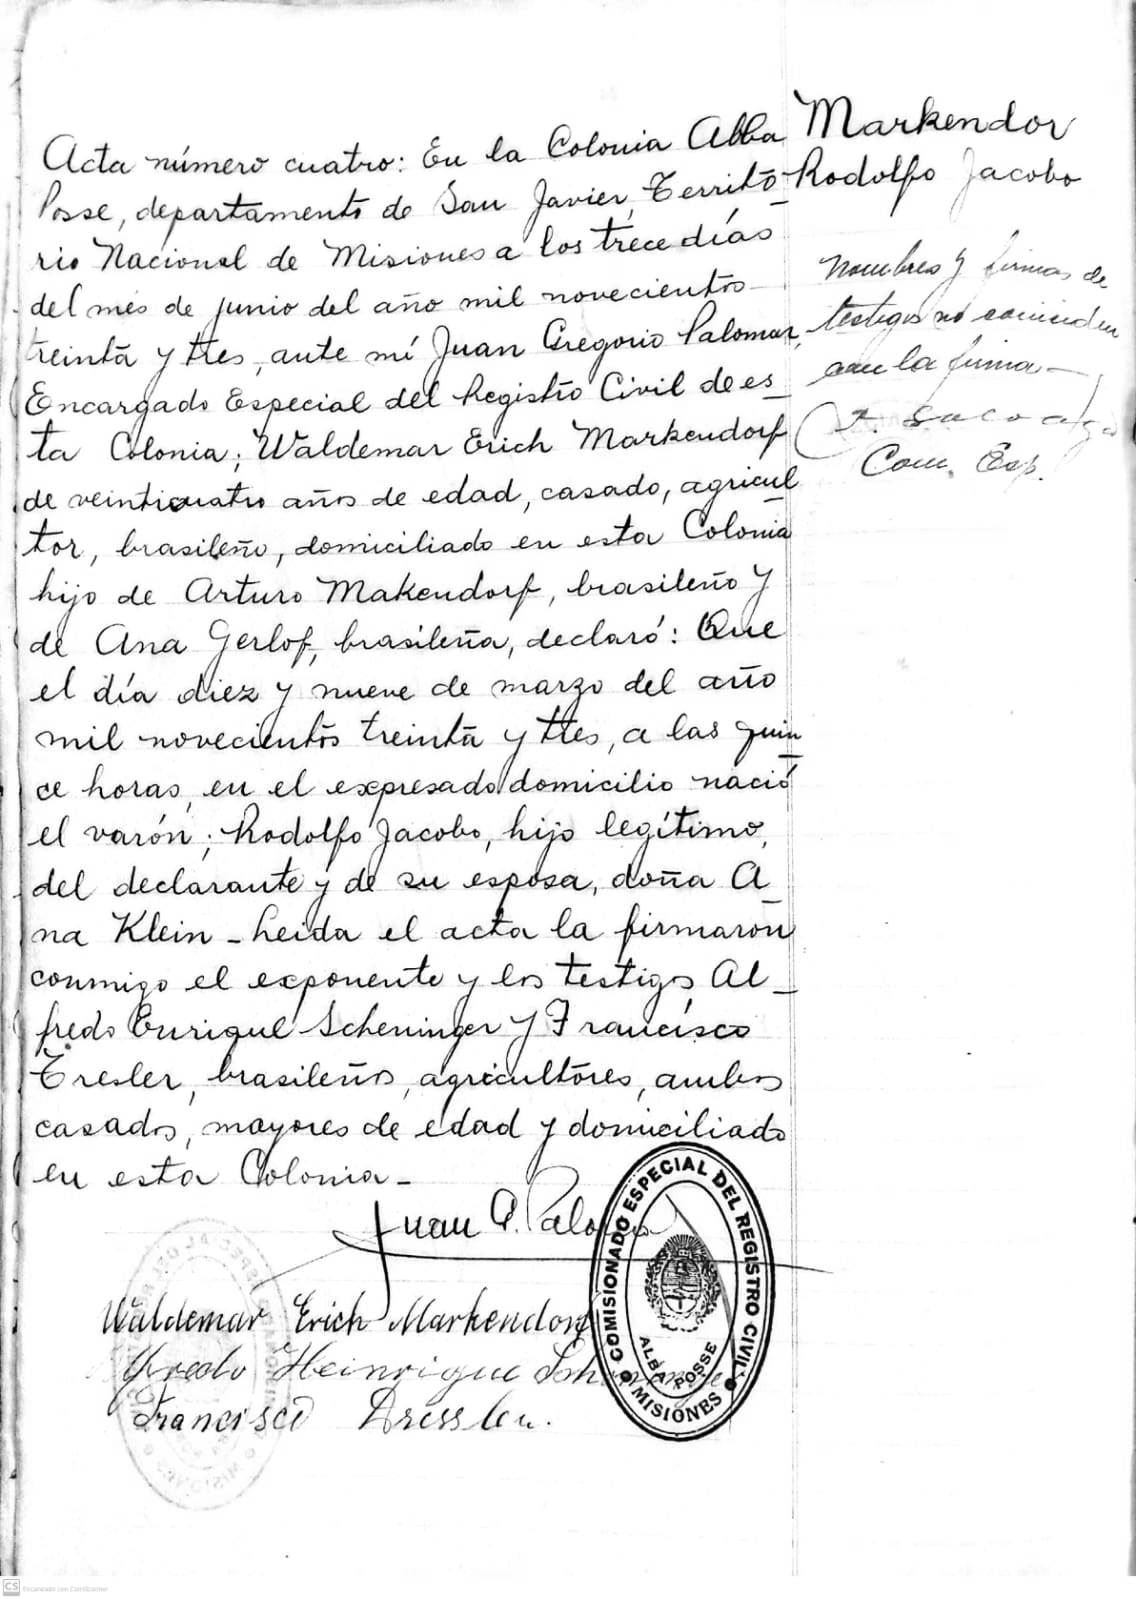 Acta número cuatro: En la Colonia Alba
Posse, departamento de San Javier, Territo_
rio Nacional de Misiones a los trece días
del més de junio del año mil novecientos
treinta y tres, ante mí Juan Gregorio Palomar,
Encargado Especial del Registro Civil de es_
ta Colonia; Waldemar Erich Markendorf
de veinticuatro años de edad, casado, agricul_
tor, brasileño, domiciliado en esta Colonia
hijo de Arturo Makendorf, brasileño y
de Ana Gerlof, brasileña, declaró: Que
el día diez y nueve de marzo del año
mil novecientos treinta y tres, a las quin_
ce horas, en el expresado domicilio nació
el varón; Rodolfo Jacobo, hijo legítimo,
del declarante y de su esposa, doña A_
na Klein - Leida el acta la firmaron
conmigo el exponente y los testigos Al_
fredo Enrique Scheninger y Francisco
Tresler, brasileños, agricultores, ambos
casados, mayores de edad y domiciliado
en esta Colonia -
Markendor
Rodolfo Jacobo
Nombres y firmas de
testigos no coinciden
con la firma -
Com. Esp.
Juan G. Palomar
Waldemar Erich Markendorf
Alfredo Heinrique
Francisco Dressler.
COMISIONADO ESPECIAL DEL REGISTRO CIVIL
ALBA POSSE
MISIONES
CS Escaneado con CamScanner